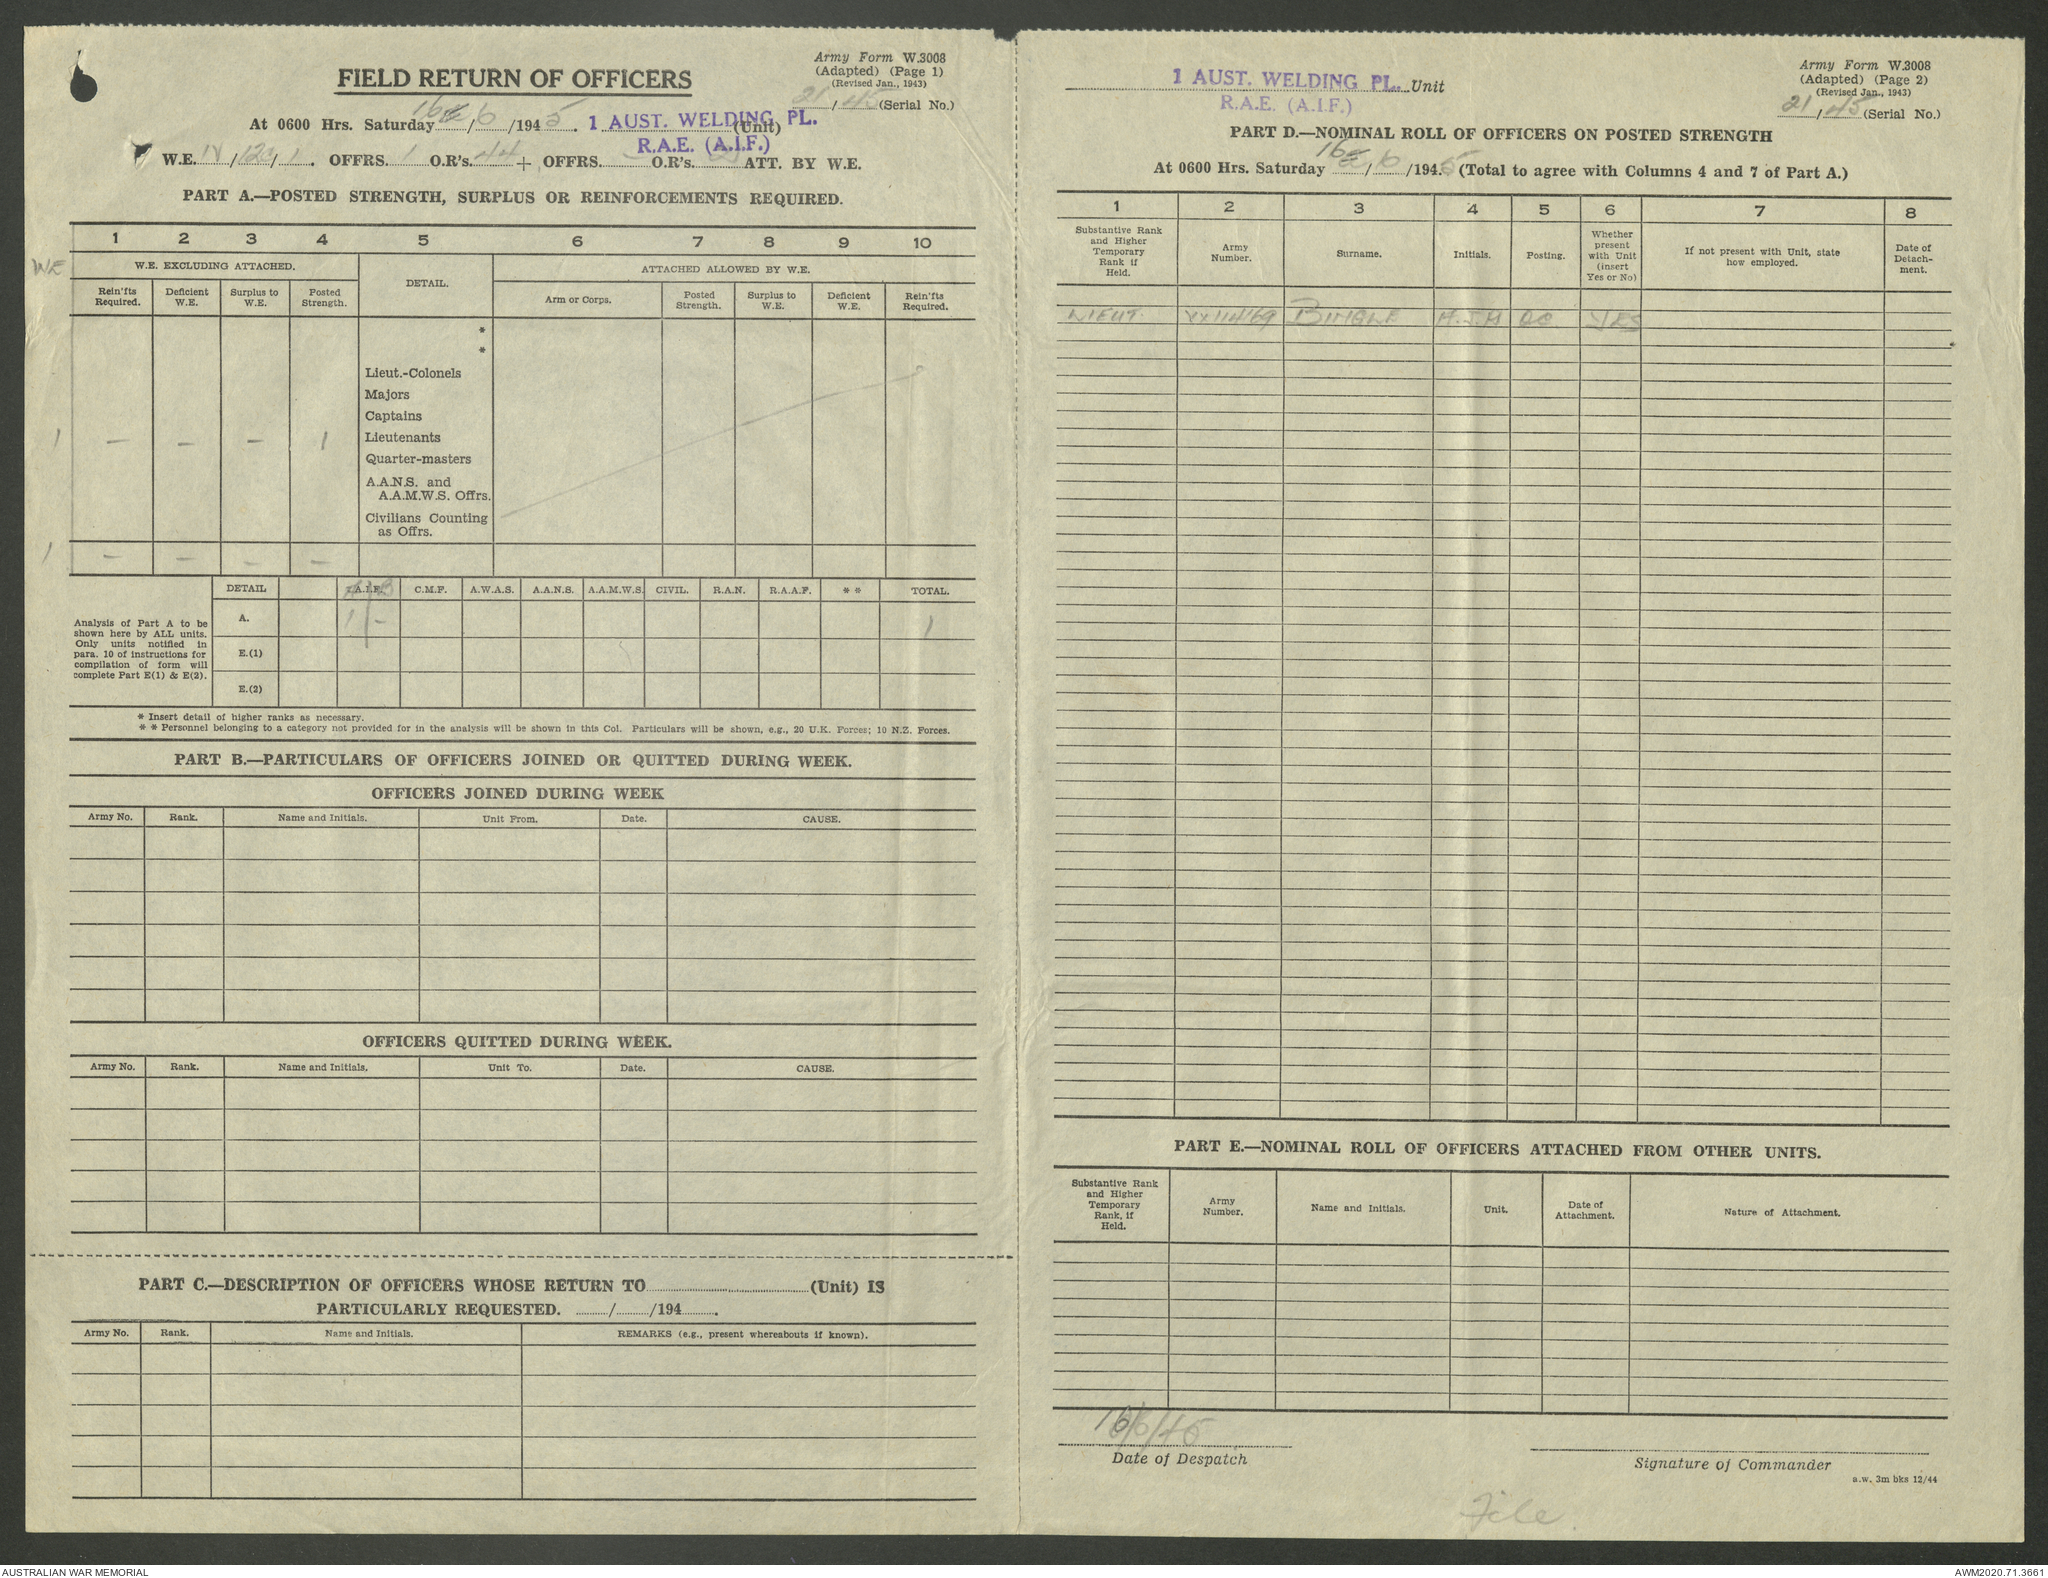 Army Form W.3008
(Adapted) (Page 1)
(Revised Jan., 1943)
21/45 (Serial No.)
FIELD RETURN OF OFFICERS
At 0600 Hrs. Saturday 16/6/1945. 1 AUST. WELDING PL. (Unit)
R.A.E. (A.I.F.)
W.E. IV/123/1. OFFRS. 1 O.R's. 44 + OFFRS. - O.R's. ATT. BY W.E.
PART A.—POSTED STRENGTH, SURPLUS OR REINFORCEMENTS REQUIRED.
1 2 3 4 5 6 7 8 9 10
WE
W.E. EXCLUDING ATTACHED. DETAIL. ATTACHED ALLOWED BY W.E.
Rein'fts Required. Deficient W.E. Surplus to W.E. Posted Strength. Arm or Corps. Posted Strength. Surplus to W.E. Deficient W.E. Rein'fts Required.
*
*
Lieut.-Colonels
Majors
Captains
1 - - - 1 Lieutenants
Quarter-masters
A.A.N.S. and
A.A.M.W.S. Offrs.
Civilians Counting
as Offrs.
1 - - - -
DETAIL A.I.F. C.M.F. A.W.A.S. A.A.N.S. A.A.M.W.S. CIVIL. R.A.N. R.A.A.F. * * TOTAL.
Analysis of Part A to be
shown here by ALL units.
Only units notified in
para. 10 of instructions for
compilation of form will
complete Part E(1) & E(2).
A. 1 - 1
E.(1)
E.(2)
* Insert detail of higher ranks as necessary.
* * Personnel belonging to a category not provided for in the analysis will be shown in this Col. Particulars will be shown, e.g., 20 U.K. Forces; 10 N.Z. Forces.
PART B.—PARTICULARS OF OFFICERS JOINED OR QUITTED DURING WEEK.
OFFICERS JOINED DURING WEEK
Army No. Rank. Name and Initials. Unit From. Date. CAUSE.
OFFICERS QUITTED DURING WEEK.
Army No. Rank. Name and Initials. Unit To. Date. CAUSE.
PART C.—DESCRIPTION OF OFFICERS WHOSE RETURN TO (Unit) IS
PARTICULARLY REQUESTED. / /194 .
Army No. Rank. Name and Initials. REMARKS (e.g., present whereabouts if known).
Army Form W.3008
(Adapted) (Page 2)
(Revised Jan., 1943)
21/45 (Serial No.)
1 AUST. WELDING PL. Unit
R.A.E. (A.I.F.)
PART D.—NOMINAL ROLL OF OFFICERS ON POSTED STRENGTH
At 0600 Hrs. Saturday 16/6/1945 (Total to agree with Columns 4 and 7 of Part A.)
1 2 3 4 5 6 7 8
Substantive Rank and Higher Temporary Rank if Held. Army Number. Surname. Initials. Posting. Whether present with Unit (insert Yes or No) If not present with Unit, state how employed. Date of Detachment.
LIEUT. VX114169 BINGLE H.J.H OC YES
PART E.—NOMINAL ROLL OF OFFICERS ATTACHED FROM OTHER UNITS.
Substantive Rank and Higher Temporary Rank, if Held. Army Number. Name and Initials. Unit. Date of Attachment. Nature of Attachment.
16/6/45
Date of Despatch
Signature of Commander
a.w. 3m bks 12/44
File
AUSTRALIAN WAR MEMORIAL
AWM2020.71.3661